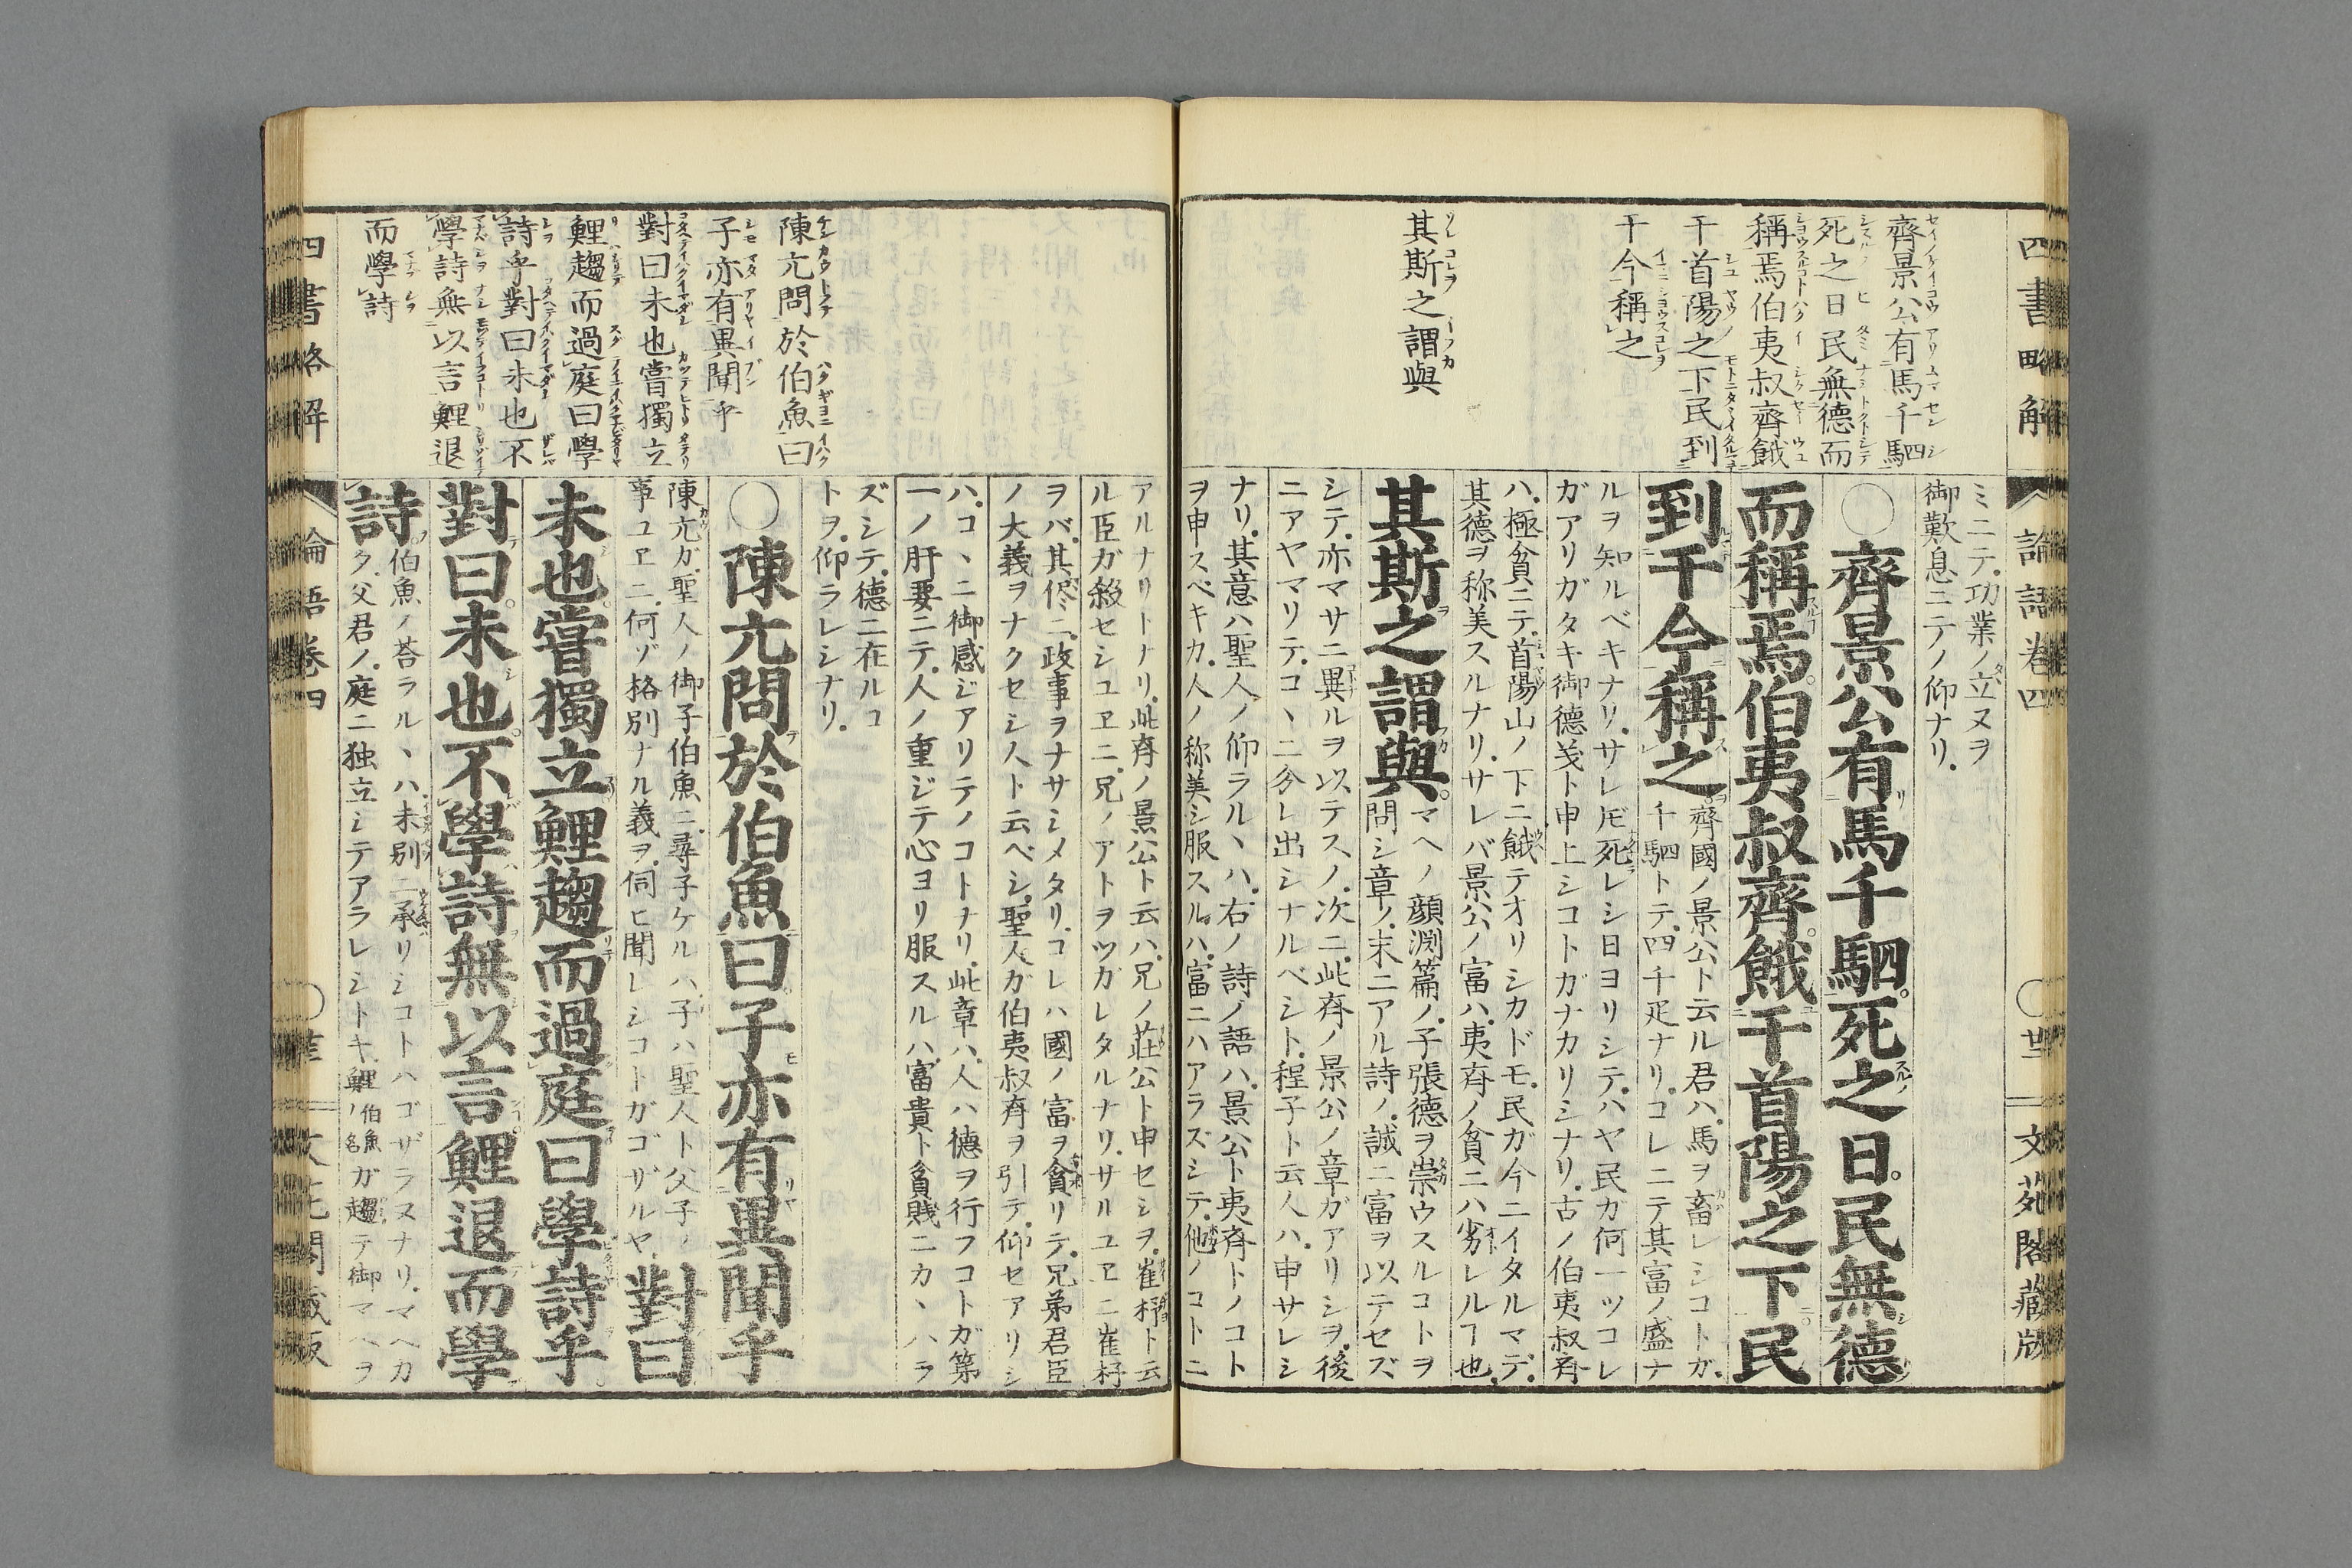 四書略解
論語巻四
文苑閣蔵版
齊景公有馬千駟
死之日民無德而
稱焉伯夷叔齊餓
于首陽之下民到
于今稱之
其斯之謂與
ミニテ功業ノ立ヌヲ
御歎息ニテノ仰ナリ
〇齊景公有馬千駟。死之日。民無德
而稱焉。伯夷叔齊。餓于首陽之下。民
到于今稱之。
齊國ノ景公ト云ル君ハ馬ヲ畜レシコトガ
千駟トテ四千疋ナリ.コレニテ其富ノ盛ナ
ルヲ知ルベキナリ.サレ𪜈死レシ日ヨリシテハヤ民ガ何一ツコレ
ガアリガタキ御德義ト申上シコトガナカリシナリ.古ノ伯夷叔齊
ハ極貧ニテ首陽山ノ下ニ餓テオリシカドモ.民ガ今ニイタルマデ
其德ヲ称美スルナリ.サレバ景公ノ富ハ夷齊ノ貧ニハ劣レルヿ也
其斯之謂與。
マヘノ顔渕篇ノ子張德ヲ崇ウスルコトヲ
問シ章ノ末ニアル詩ノ誠ニ富ヲ以テセズ
シテ亦マサニ異ルヲ以テスノ次ニ此齊ノ景公ノ章ガアリシヲ後
ニアヤマリテコヽニ分レ出シナルベシト程子ト云人ハ申サレシ
ナリ.其意ハ聖人ノ仰ラルヽハ右ノ詩ノ語ハ景公ト夷齊トノコト
ヲ申スベキカ.人ノ称美シ服スルハ富ニハアラズシテ他ノコトニ
陳亢問於伯魚曰
子亦有異聞乎
對曰未也嘗獨立
鯉趨而過庭曰學
詩乎對曰未也不
學詩無以言鯉退
而學詩
アルナリトナリ.此齊ノ景公ト云ハ兄ノ莊公ト申セシヲ崔杼ト云
ル臣ガ殺セシユヱニ兄ノアトヲツガレタルナリ.サルユヱニ崔杼
ヲバ其侭ニ政事ヲナサシメタリ.コレハ國ノ富ヲ貪リテ兄弟君臣
ノ大義ヲナクセシ人ト云ベシ.聖人ガ伯夷叔齊ヲ引テ仰セアリシ
ハコヽニ御感ジアリテノコトナリ.此章ハ人ハ德ヲ行フコトガ第
一ノ肝要ニテ人ノ重ジテ心ヨリ服スルハ富貴ト貧賎ニカヽハラ
ズシテ德ニ在ルコ
トヲ仰ラレシナリ.
〇陳亢問於伯魚曰子亦有異聞乎
陳亢ガ聖人ノ御子伯魚ニ尋子ケルハ子ハ聖人ト父子ノ
事ユヱニ何ゾ格別ナル義ヲ伺ヒ聞レシコトガゴザルヤ
對曰
未也。嘗獨立鯉趨而過庭曰學詩乎。
對曰。未也。不學詩無以言鯉退而學
詩
伯魚ノ荅ラルヽハ未別ニ承リシコトハゴザラヌナリ.マヘカ
タ父君ノ庭ニ独立シテアラレシトキ鯉ノ伯魚名ガ趨テ御マヘヲ
四書略解
論語巻四